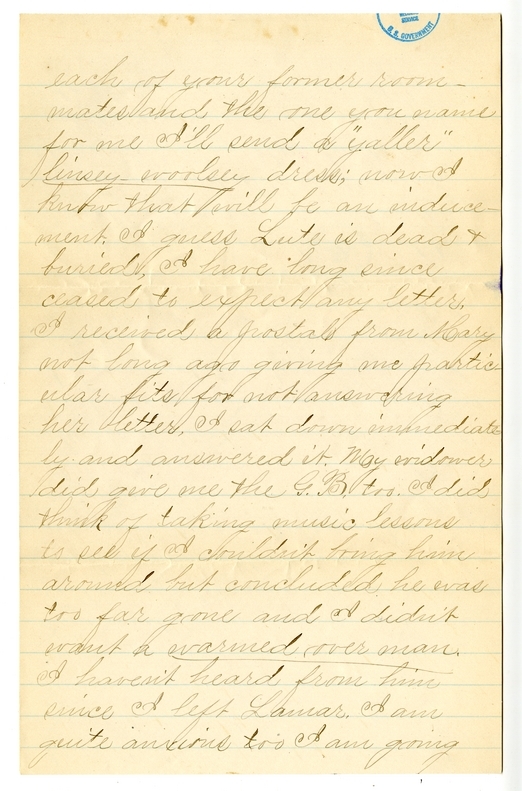 SERVICE
U. S. GOVERNMENT
each of your former room-
mates and the one you name
for me I'll send a "yaller"
linsey-woolsey dress; now I
know that will be an induce-
ment. I guess Lute is dead &
buried, I have long since
ceased to expect any letter.
I received a postal from Mary
not long ago giving me partic
ular fits for not answering
her letter. I sat down immediate
ly and answered it. My widower
did give me the G.B. too. I did
think of taking music lessons
to see if I couldn't bring him
around but concluded, he was
too far gone and I didn't
want a warmed over man.
I haven't heard from him
since I left Lamar. I am
quite anxious too I am going